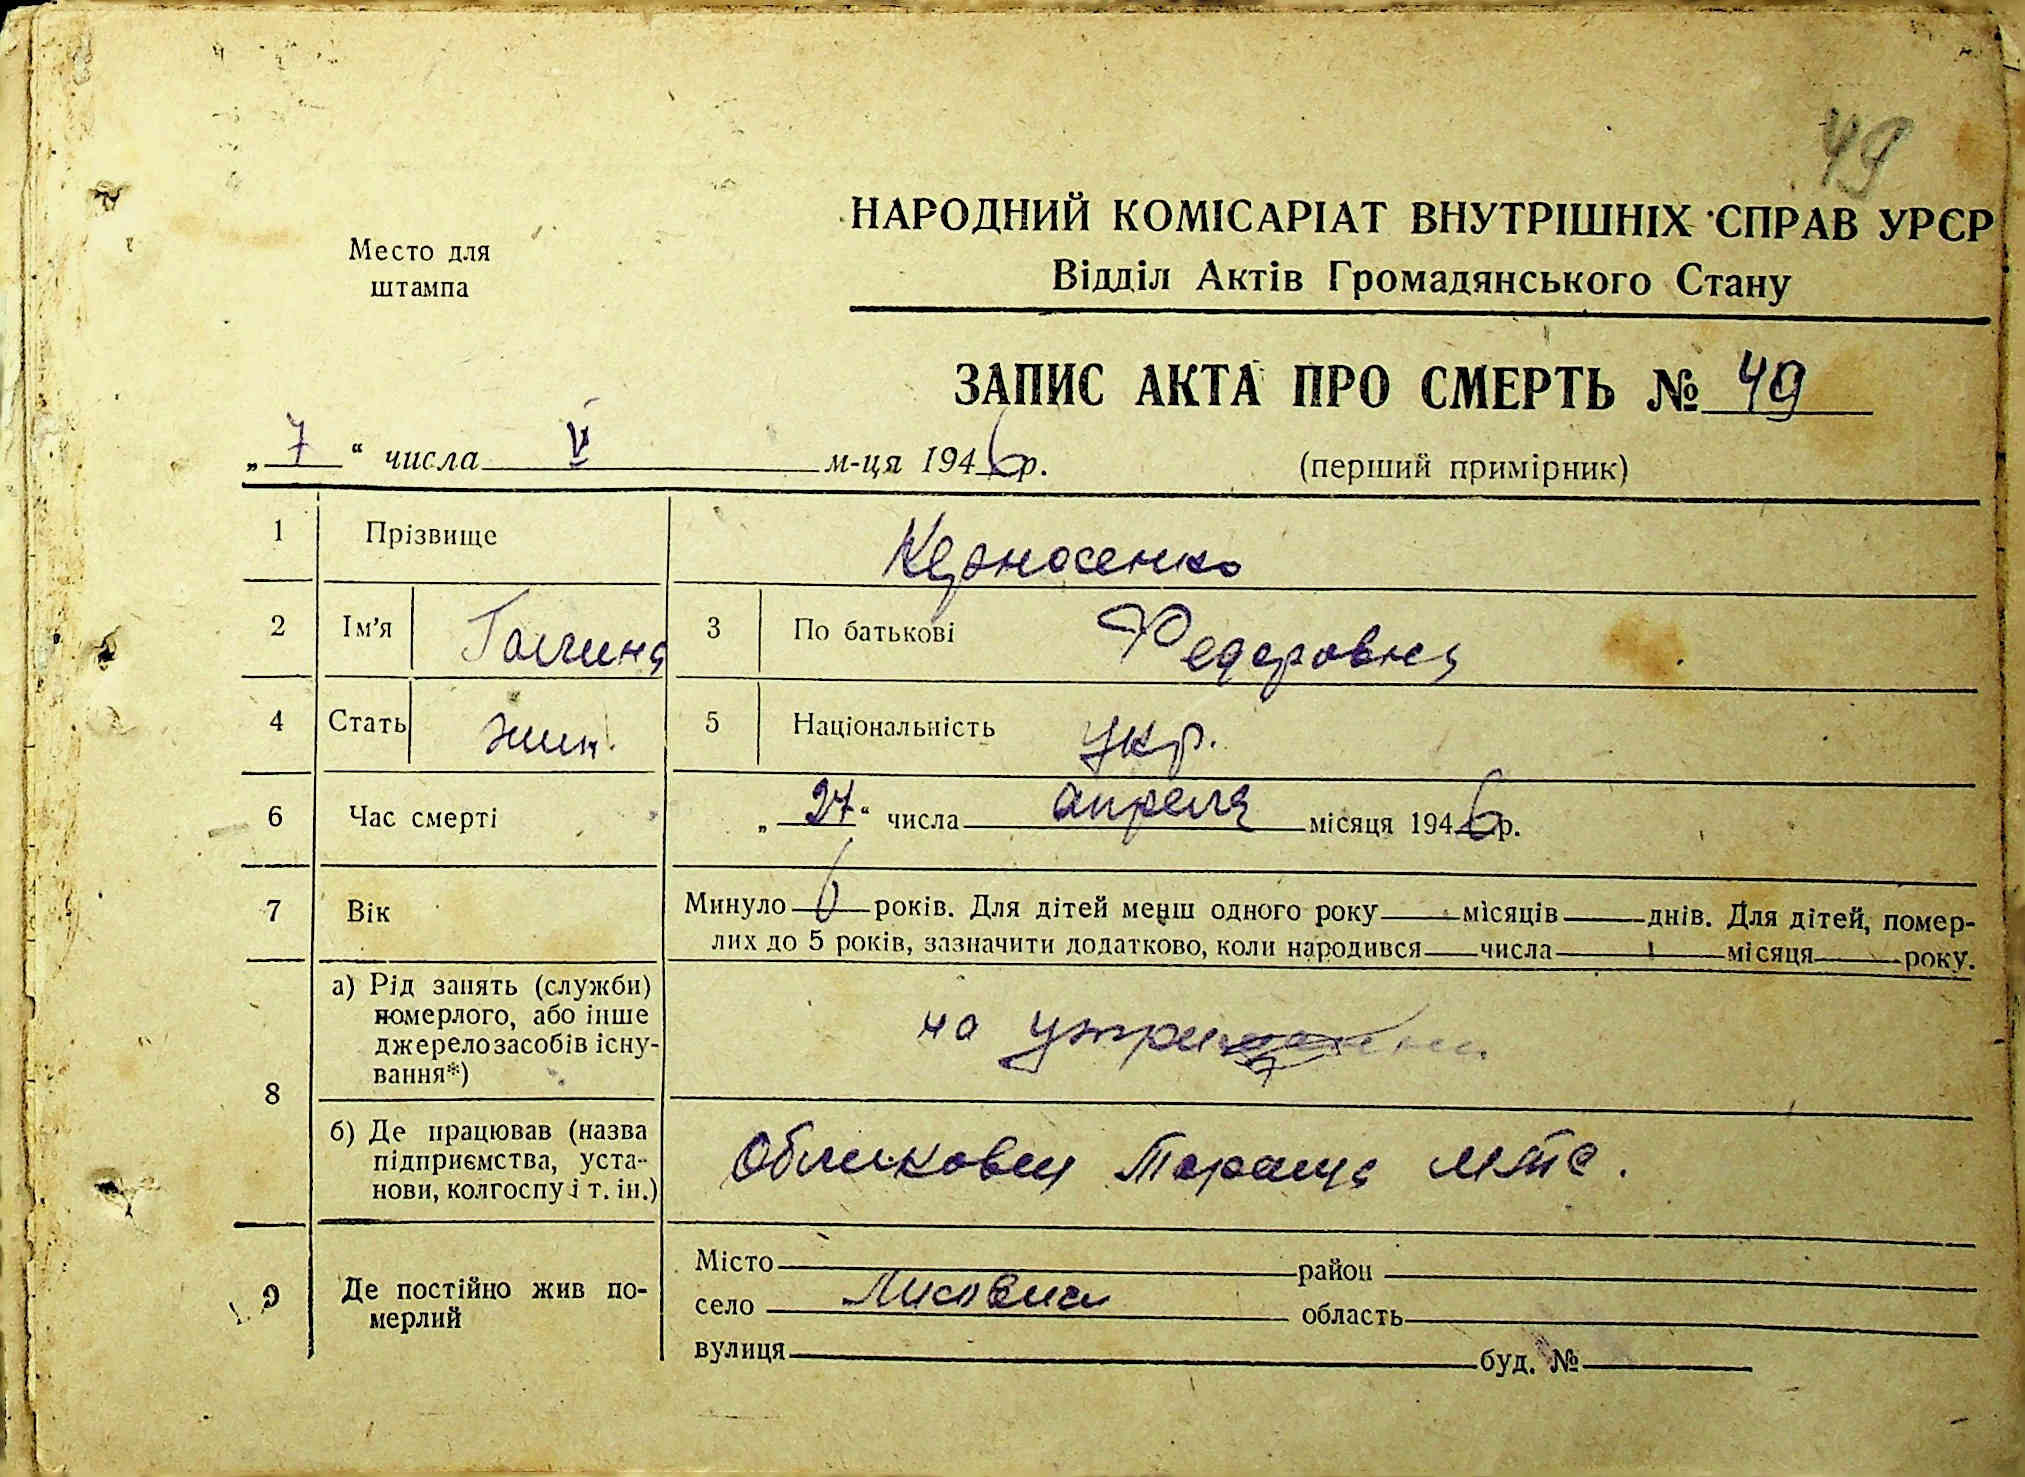 49
Место для
штампа
НАРОДНИЙ КОМІСАРІАТ ВНУТРІШНІХ СПРАВ УРСР
Відділ Актів Громадянського Стану
ЗАПИС АКТА ПРО СМЕРТЬ № 49
„ 7 “ числа V м-ця 1946 р. (перший примірник)
1 Прізвище Керносенко
2 Ім'я Галина 3 По батькові Федоровна
4 Стать жин. 5 Національність укр.
6 Час смерті „ 27 “ числа апреля місяця 1946 р.
7 Вік Минуло 6 років. Для дітей менш одного року місяців днів. Для дітей, помер-
лих до 5 років, зазначити додатково, коли народився числа місяця року.
8 а) Рід занять (служби)
померлого, або інше
джерело засобів існу-
вання*)
на
б) Де працював (назва
підприємства, уста-
нови, колгоспу і т. ін.)
МТС.
9 Де постійно жив по-
мерлий
Місто район
село область
вулиця буд. №